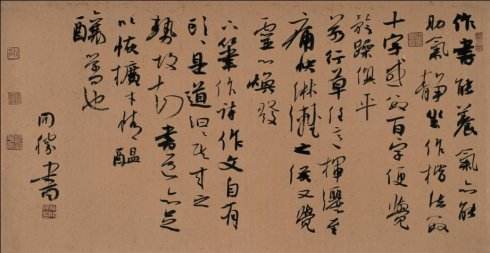 作書能養氣亦能
助氣靜坐作楷法數
十字或數百字便覺
矜躁俱平
若行草任意揮灑至
痛快淋漓之候又覺
靈心煥發
下筆作詩作文自有
頭〻是道汩〻其來之
勢故知書道亦足
以恢擴才情醞
釀學也
書